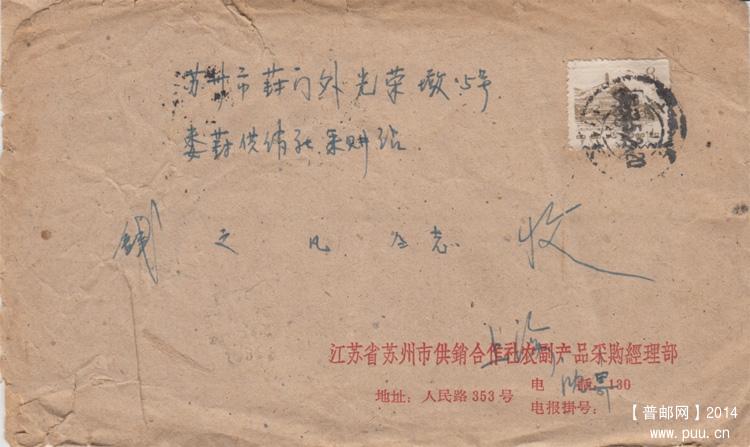 苏州市葑门外光荣墩15号
娄葑供销社采购站
钱之凡同志 收
8
上海
江苏省苏州市供銷合作社农副产品采购經理部
地址：人民路353号 电 130
电报掛号：
【普邮网】2014
www.puu.cn